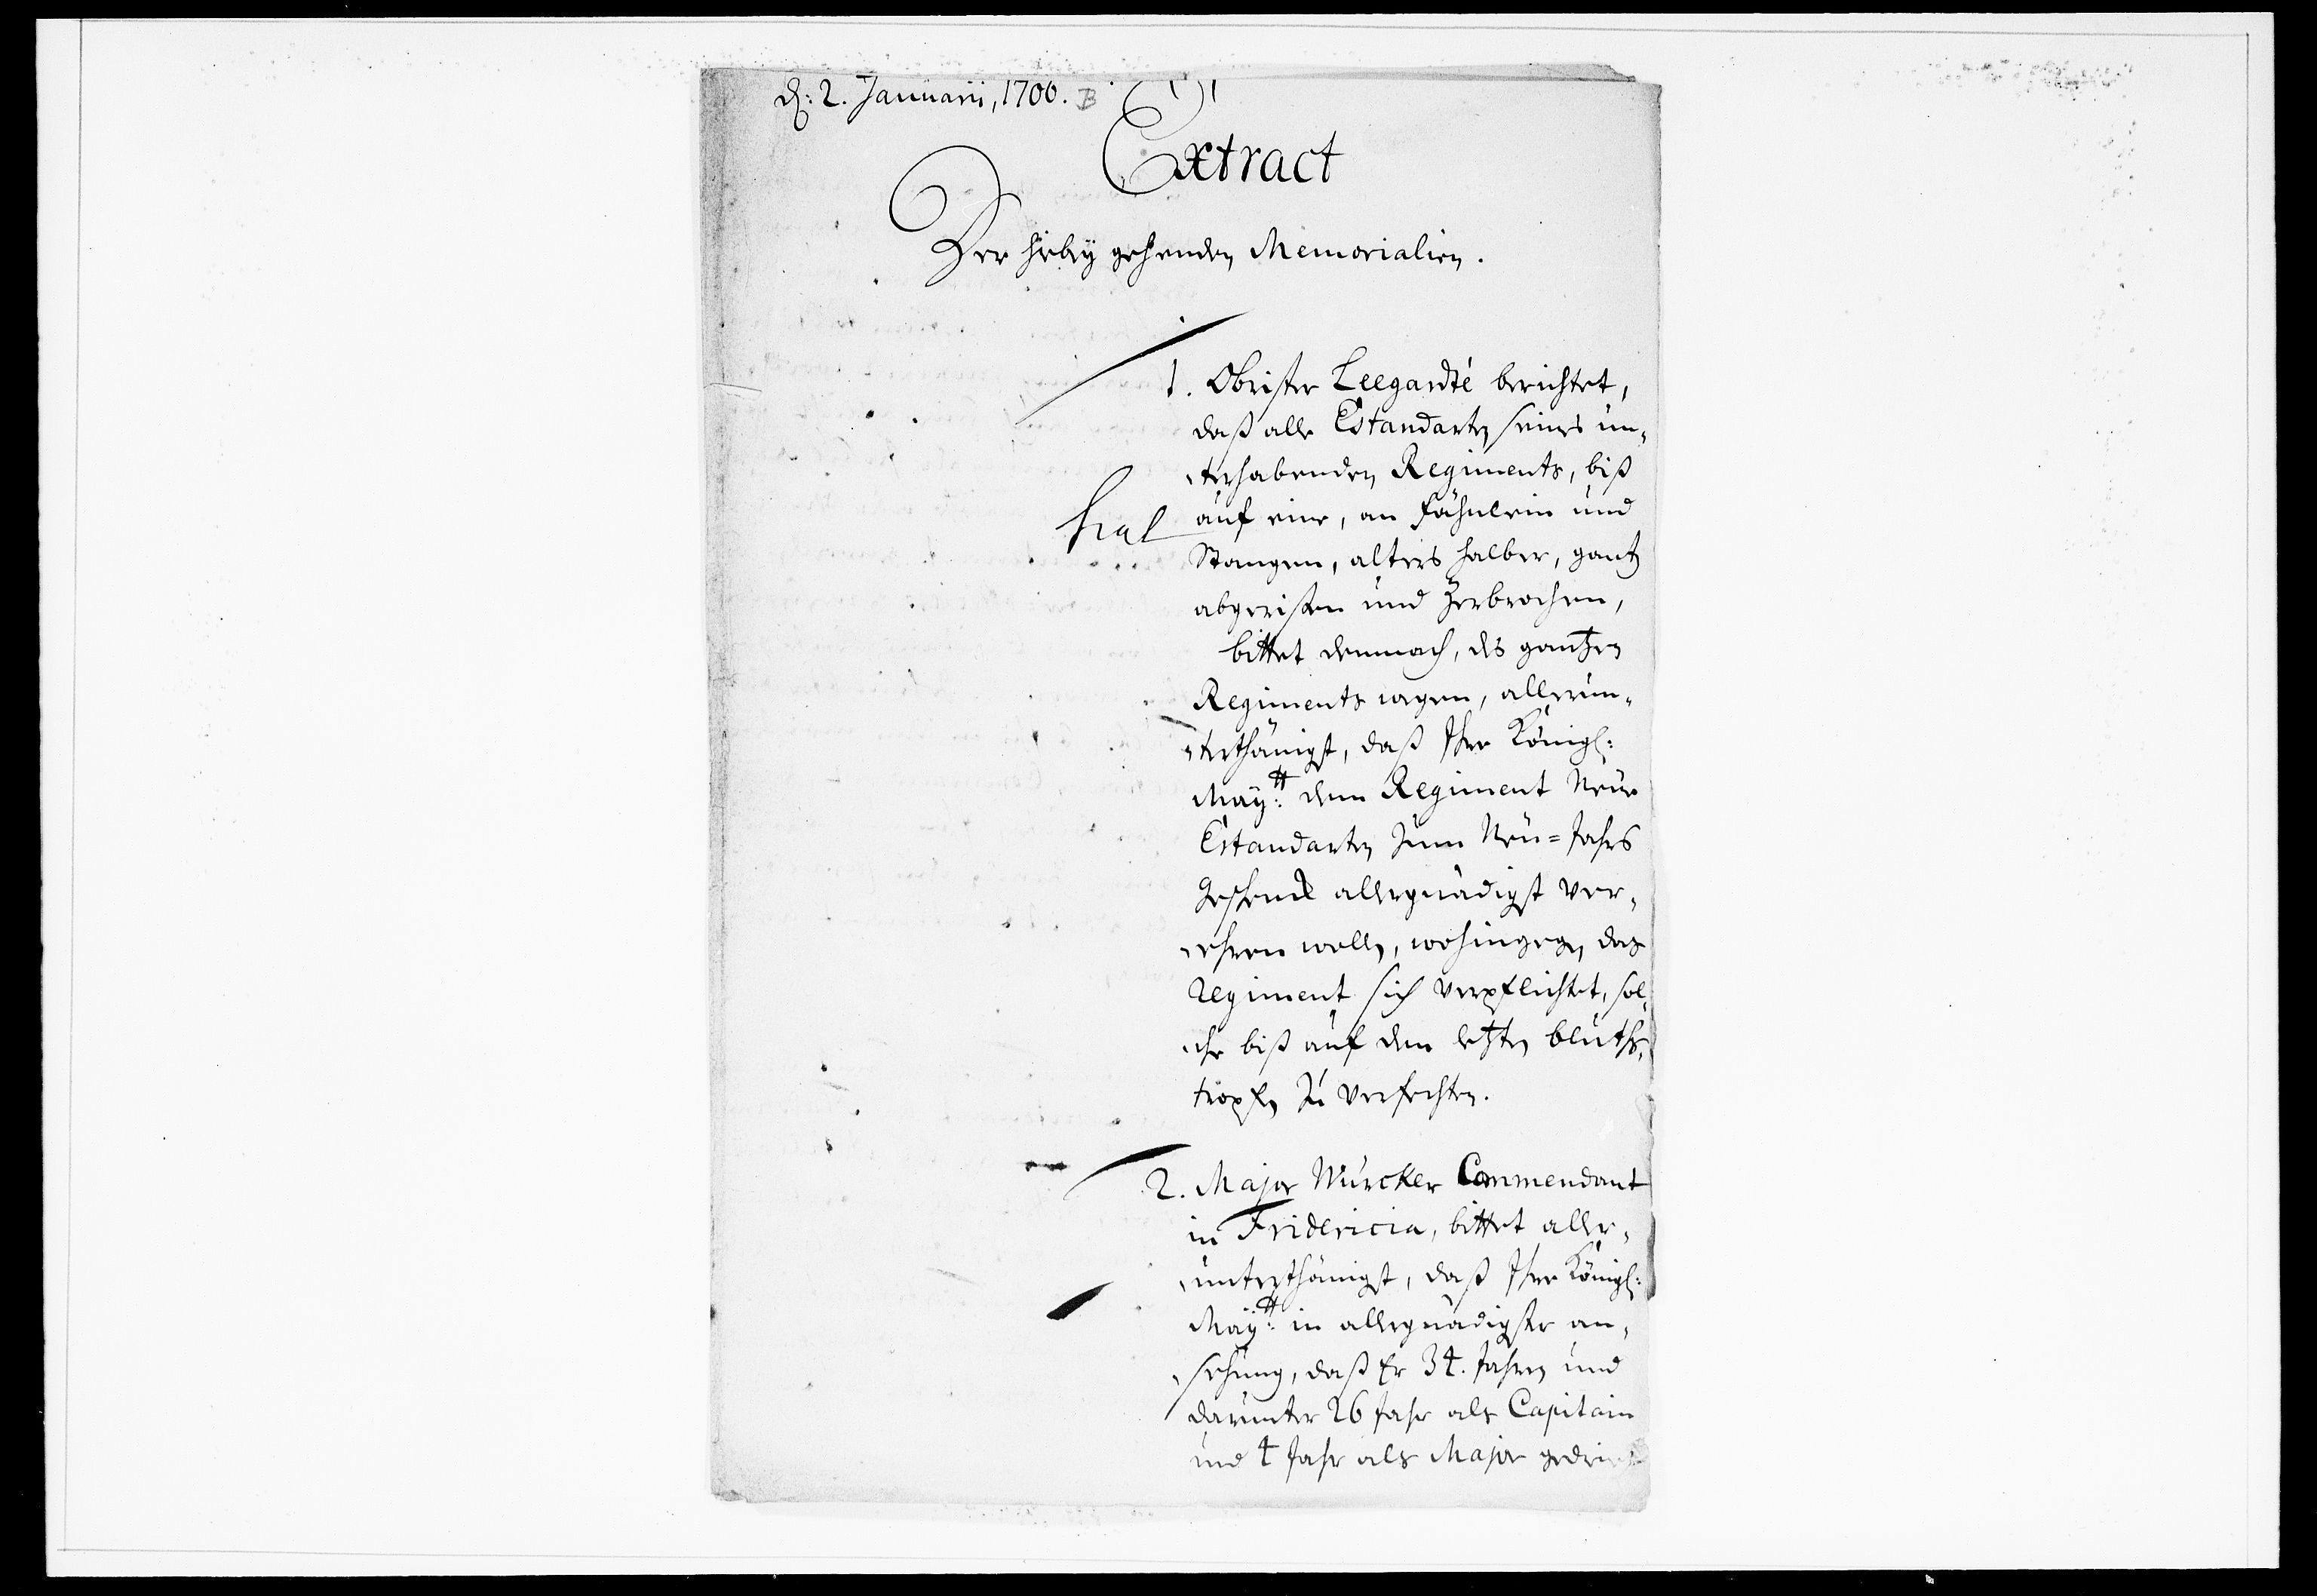 d: 2. Januarii, 1700. B
Extract
Der hiebeÿ gehenden Memorialien.
1. Obrister Leegardté berichtet,
daß alle Estandarten seines un-
terhabenden Regiments, biß
auf eine, an Fähnlein und
Stangen, alters halber, gantz
abgerißen und zerbrochen,
bittet demnach, des gantzen
Regiments wegen, allerun-
terthänigst, daß Ihr Königl:
Maÿ:tt dem Regiment Neue
Estandarten zum Neu=Jahrs
Geschenck allergnädigst ver-
ehren wollen, wohingegen das
Regiment sich verpflichtet, sol-
che biß auf dem letzten bluths-
tropfen zu verfechten.
2. Major Würcker Commendant
in Fridericia, bittet aller-
unterthänigst, daß Ihr Königl:
Maÿ:tt in allergnädigster an-
sehung, daß Er 34. Jahren und
darunter 26 Jahr als Capitain
und 4 Jahr als Major gedient